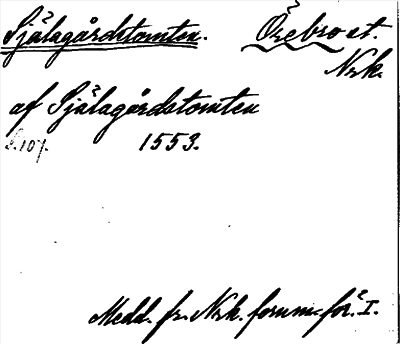 Själagårdstomten. Örebro st.
Nrk.
af Själagårdstomten
S. 107. 1553.
Medd. fr. Nrk. fornm.-för. I.